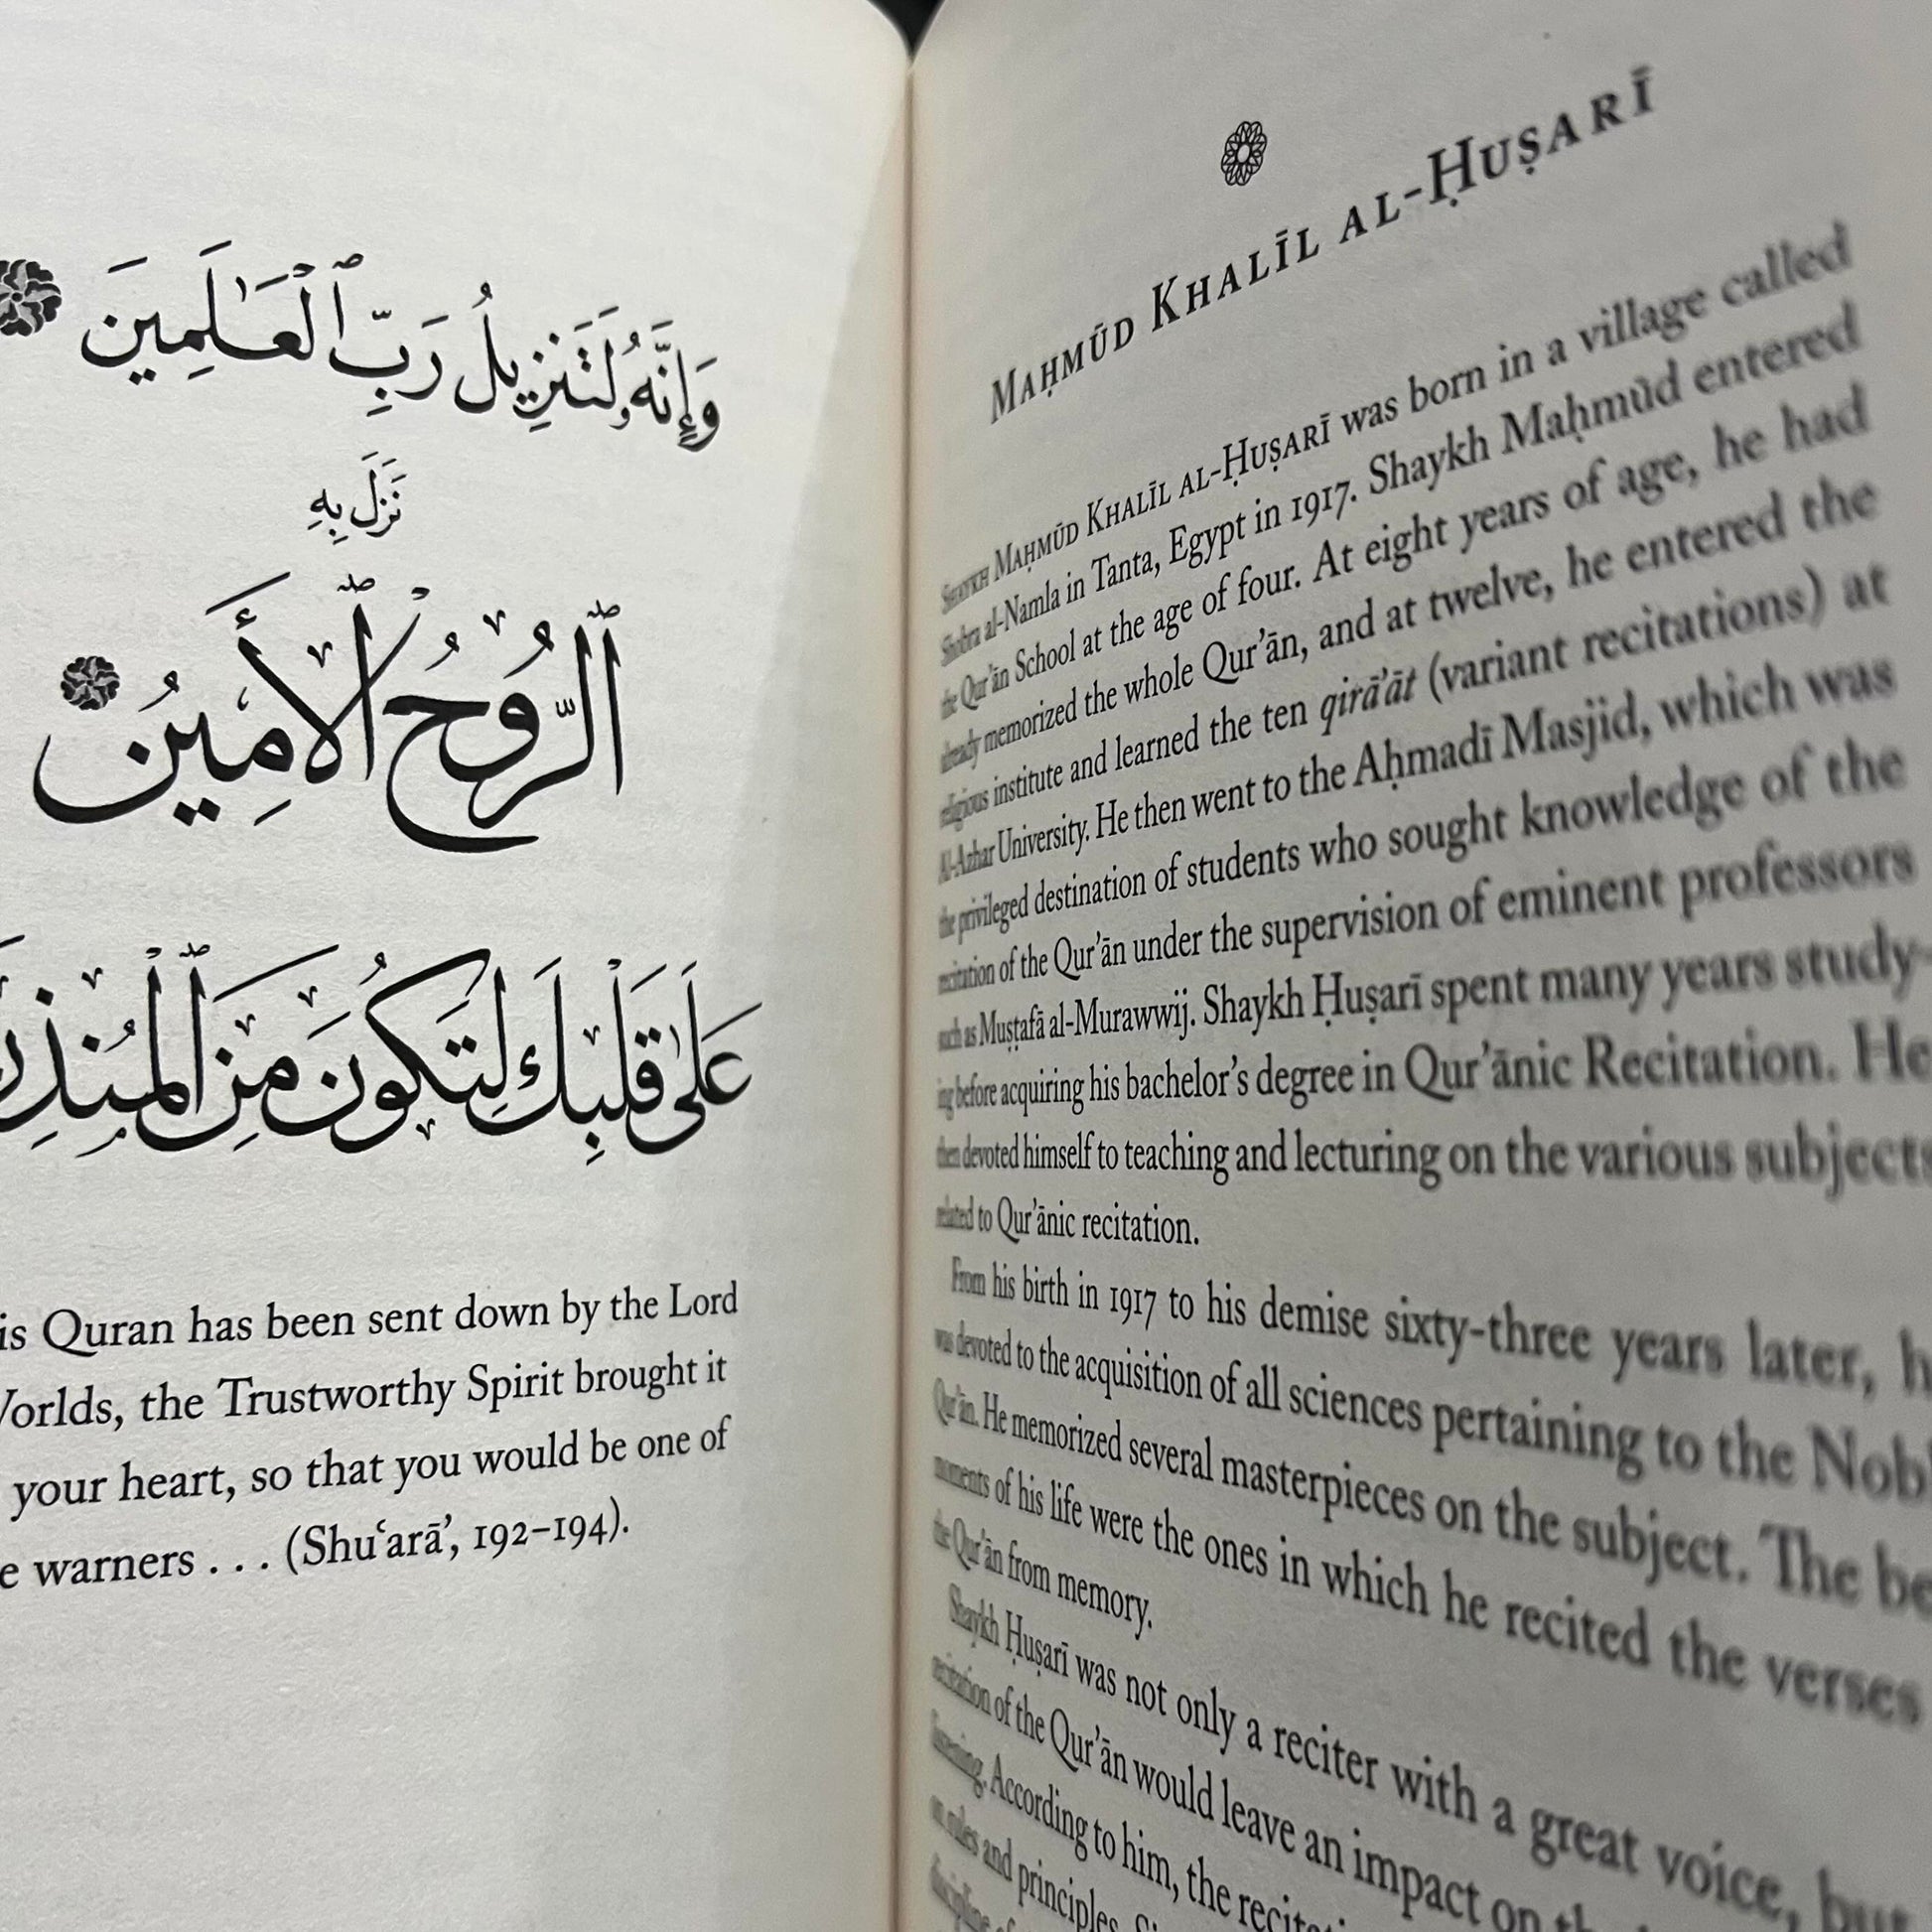 وَإِنَّهُۥ لَتَنزِيلُ رَبِّ ٱلْعَٰلَمِينَ
نَزَلَ بِهِ
ٱلرُّوحُ ٱلْأَمِينُ
عَلَىٰ قَلْبِكَ لِتَكُونَ مِنَ ٱلْمُنذِرِ
is Quran has been sent down by the Lord
Vorlds, the Trustworthy Spirit brought it
your heart, so that you would be one of
e warners . . . (Shuʿarāʾ, 192–194).
Maḥmūd Khalīl al-Ḥuṣarī
Shaykh Maḥmūd Khalīl al-Ḥuṣarī was born in a village called
Shobra al-Namla in Tanta, Egypt in 1917. Shaykh Maḥmūd entered
the Qur’ān School at the age of four. At eight years of age, he had
already memorized the whole Qur’ān, and at twelve, he entered the
religious institute and learned the ten qirā’āt (variant recitations) at
Al-Azhar University. He then went to the Aḥmadī Masjid, which was
the privileged destination of students who sought knowledge of the
recitation of the Qur’ān under the supervision of eminent professors
such as Muṣṭafā al-Murawwij. Shaykh Ḥuṣarī spent many years study-
ing before acquiring his bachelor’s degree in Qur’ānic Recitation. He
then devoted himself to teaching and lecturing on the various subjects
related to Qur’ānic recitation.
From his birth in 1917 to his demise sixty-three years later, h
was devoted to the acquisition of all sciences pertaining to the Nobl
Qur’ān. He memorized several masterpieces on the subject. The be
moments of his life were the ones in which he recited the verses
the Qur’ān from memory.
Shaykh Ḥuṣarī was not only a reciter with a great voice, but
recitation of the Qur’ān would leave an impact on
listening. According to him, the
on rules and principles.
discipline